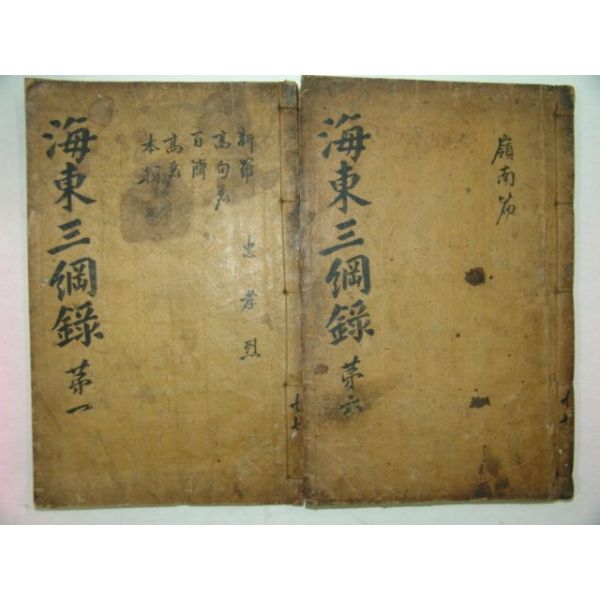 海東三綱錄 第一
新羅
高句麗
百濟
高麗
本朝
忠 孝 烈
共七
海東三綱錄 第六
嶺南篇
共七